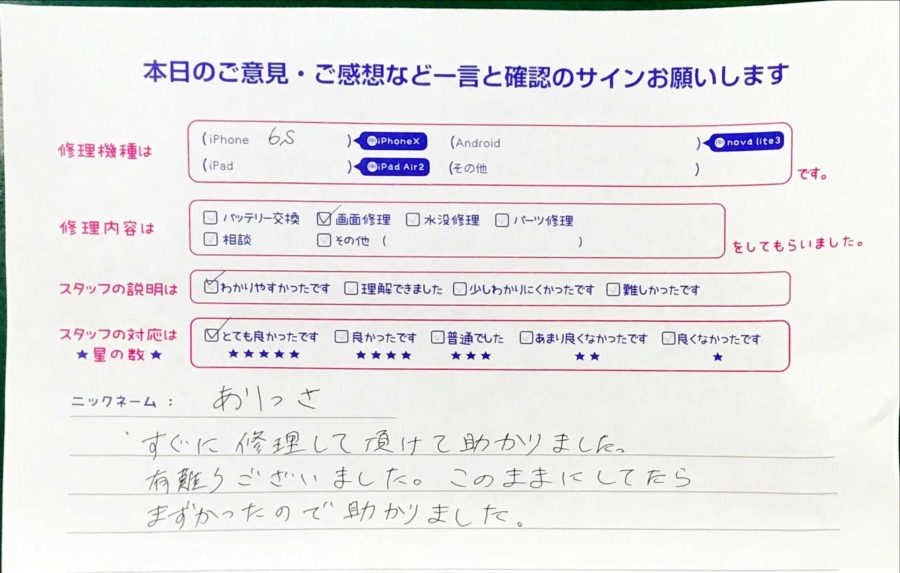 本日のご意見・ご感想など一言と確認のサインお願いします
修理機種は
(iPhone 6S ) iPhoneX (Android ) nova lite3
(iPad ) iPad Air2 (その他 ) です。
修理内容は
バッテリー交換 画面修理 水没修理 パーツ修理
相談 その他 ( ) をしてもらいました。
スタッフの説明は わかりやすかったです 理解できました 少しわかりにくかったです 難しかったです
スタッフの対応は とても良かったです 良かったです 普通でした あまり良くなかったです 良くなかったです
★星の数★ ★★★★★ ★★★★ ★★★ ★★ ★
ニックネーム: ありっさ
すぐに修理して頂けて助かりました。
有難うございました。このままにしてたら
まずかったので助かりました。